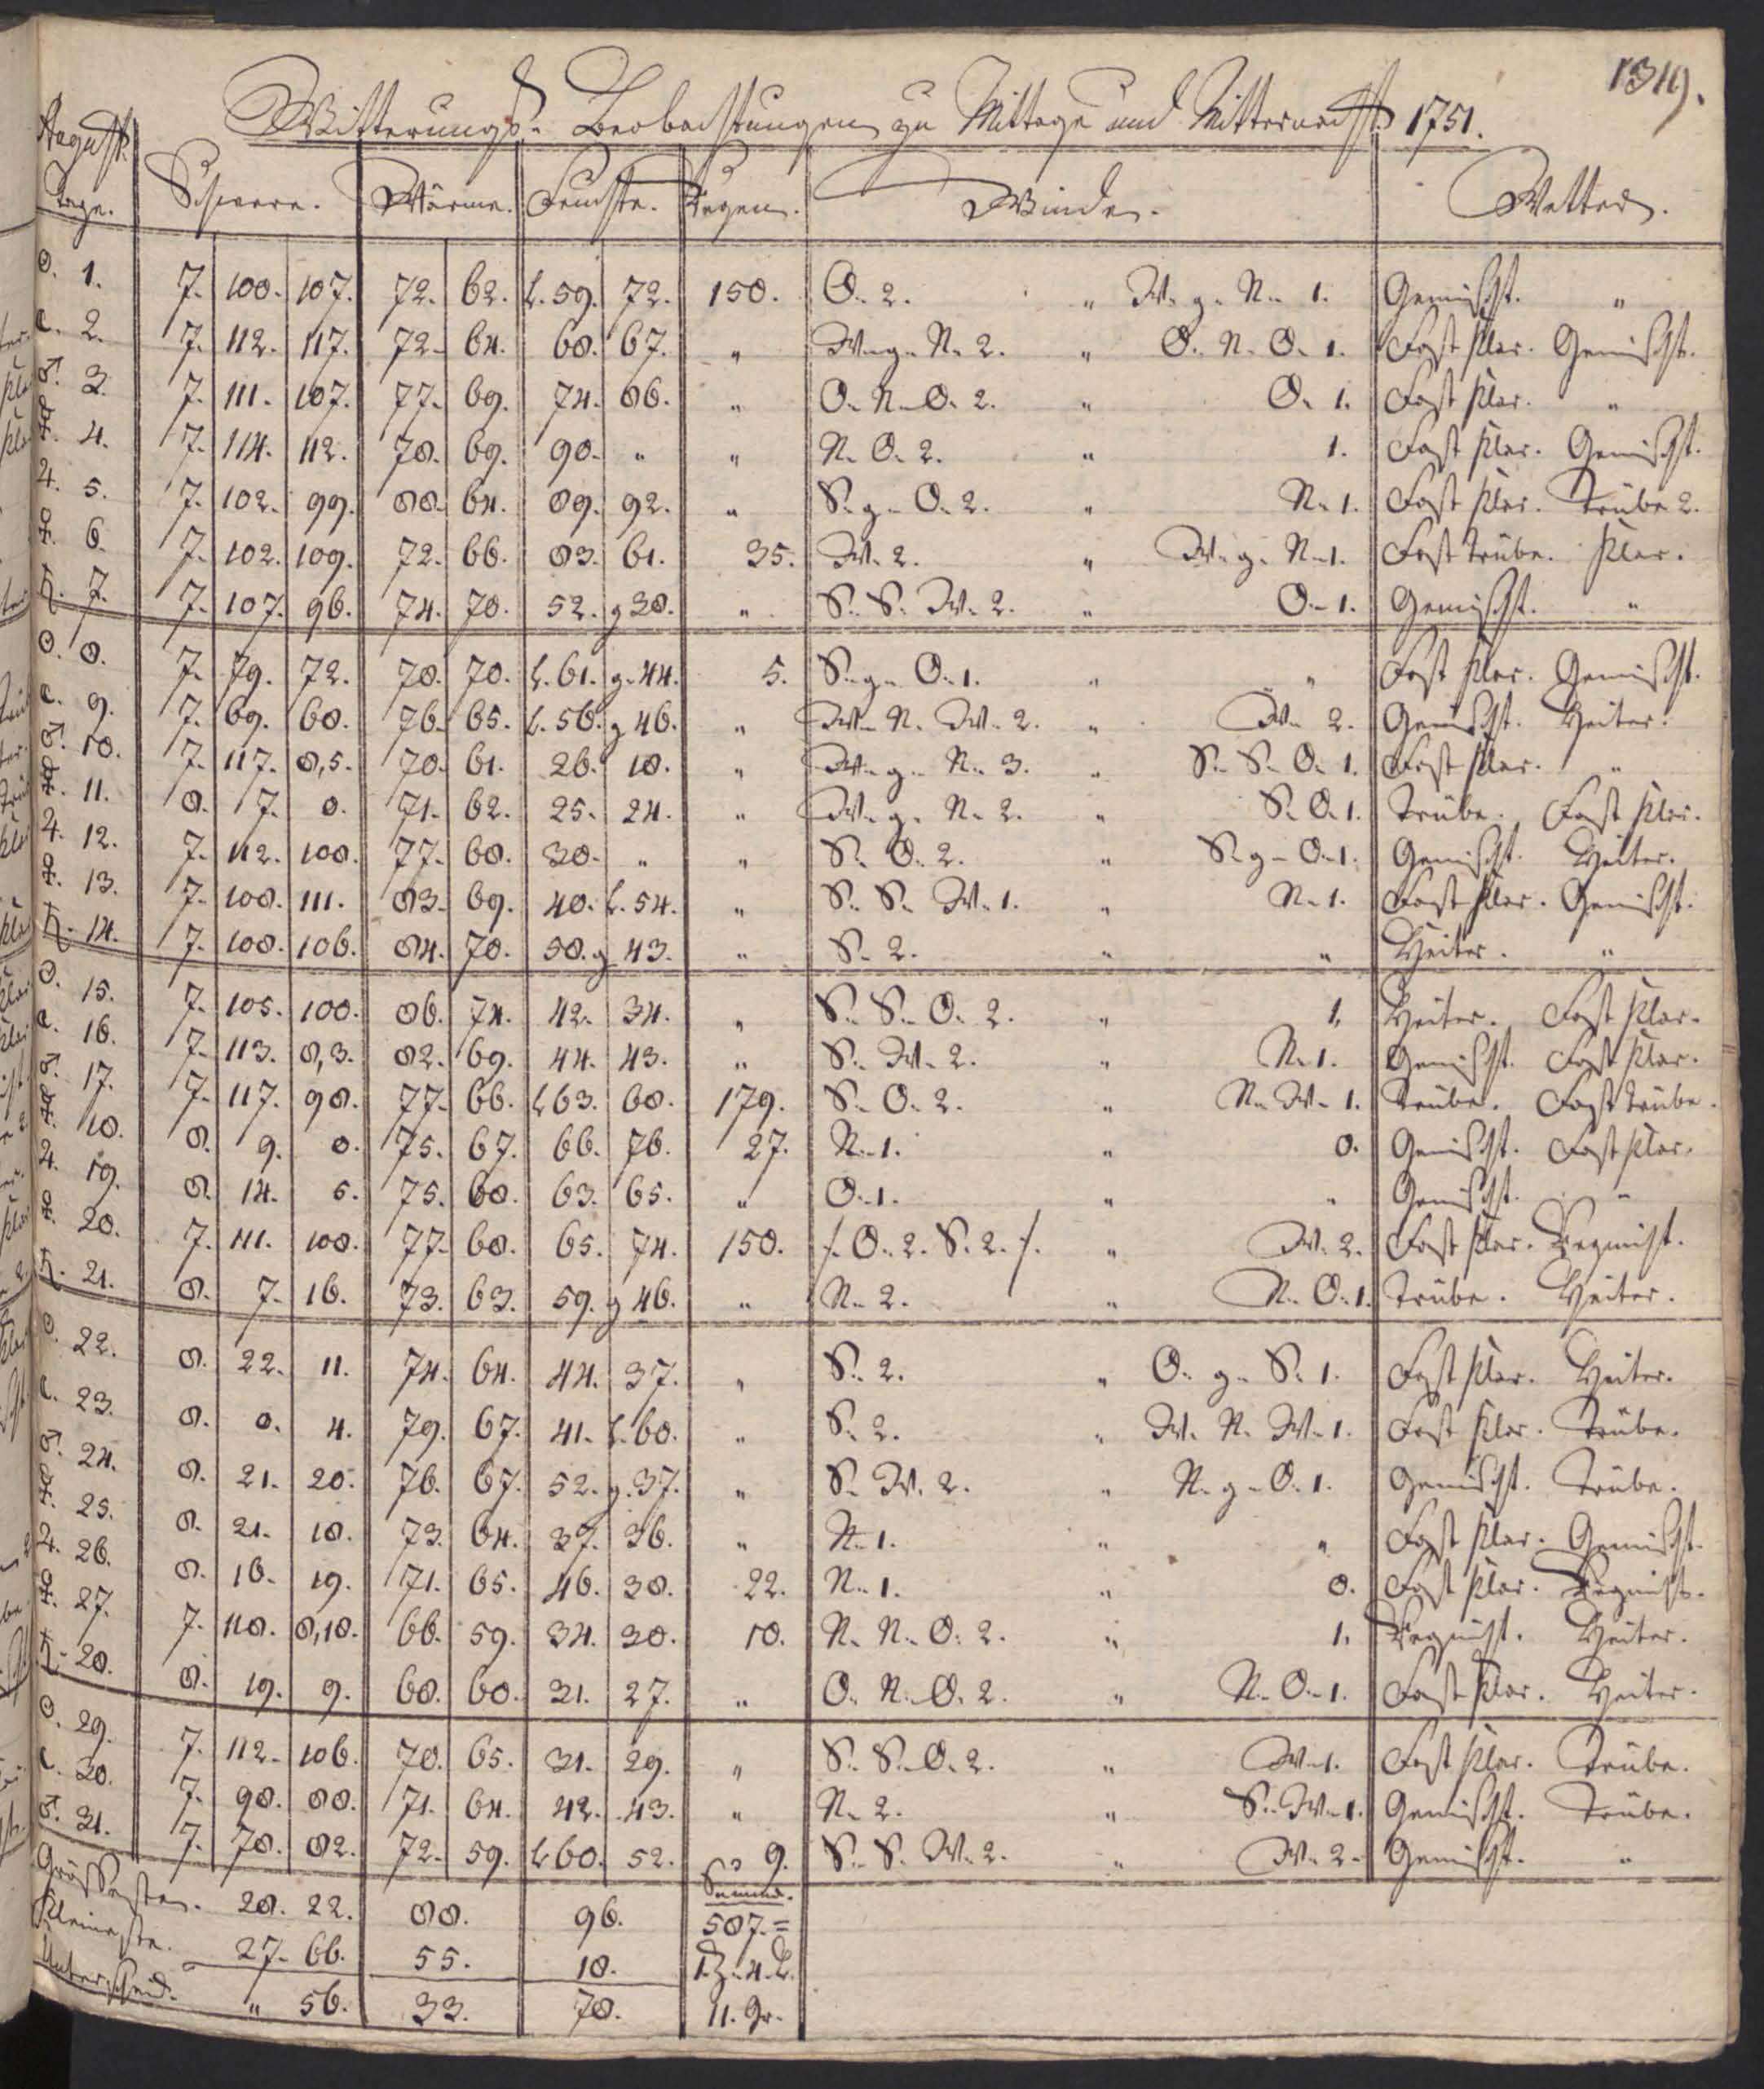 1319.
Witterungs- Beobachtungen zu Mittage und Mitternacht 1751.
August.
Tage. Schwere. Wärme. Feuchte. Regen. Winde. Wetter.
☉. 1. 7. 108. 107. 72. 62. L. 59. 72. 150. O. 2. „ W. g. N. 1. Gemischt. „
☾. 2. 7. 112. 117. 72. 64. 68. 67. „ W. g. N. 2. „ O. N. O. 1. Fast klar. Gemischt.
♂. 3. 7. 111. 107. 77. 69. 74. 86. „ O. N. O. 2. „ O. 1. Fast klar. „
☿. 4. 7. 114. 112. 78. 69. 90. „ „ N. O. 2. „ 1. Fast klar. Gemischt.
♃. 5. 7. 102. 99. 88. 64. 89. 92. „ S. g. O. 2. „ N. 1. Fast klar. Trübe 2.
♀. 6. 7. 102. 109. 72. 66. 83. 61. 35. W. 2. „ W. g. N. 1. Fast trübe. klar.
♄. 7. 7. 107. 96. 74. 70. 52. g 38. „ S. S. W. 2. „ O. 1. Gemischt. „
☉. 8. 7. 79. 72. 78. 70. L. 61. g. 44. 5. S. g. O. 1. „ „ Fast klar. Gemischt.
☾. 9. 7. 69. 68. 76. 65. L. 56. g 46. „ W. N. W. 2. „ W. 2. Gemischt. Heiter.
♂. 10. 7. 117. 8,5. 70. 61. 26. 18. „ W. g. N. 3. „ S. S. O. 1. Fast klar. „
☿. 11. 8. 7. 0. 71. 62. 25. 24. „ W. g. N. 2. „ S. O. 1. Trübe. Fast klar.
♃. 12. 7. 112. 108. 77. 68. 30. „ „ S. O. 2. „ S. g. O. 1. Gemischt. Heiter.
♀. 13. 7. 108. 111. 83. 69. 40. L. 54. „ S. S. W. 1. „ N. 1. Fast klar. Gemischt.
♄. 14. 7. 108. 106. 84. 70. 58. g 43. „ S. 2. „ „ Heiter. „
☉. 15. 7. 105. 100. 86. 74. 42. 34. „ S. S. O. 2. „ 1. Heiter. Fast klar.
☾. 16. 7. 113. 8,3. 82. 69. 44. 43. „ S. W. 2. „ N. 1. Gemischt. Fast klar.
♂. 17. 7. 117. 98. 77. 66. L 63. 68. 179. S. O. 2. „ N. W. 1. Trübe. Fast trübe.
☿. 18. 8. 9. 8. 75. 67. 66. 76. 27. N. 1. „ 0. Gemischt. Fast klar.
♃. 19. 8. 14. 5. 75. 68. 63. 65. „ O. 1. „ „ Gemischt. „
♀. 20. 7. 111. 108. 77. 68. 65. 74. 150. /. O. 2. S. 2. /. „ W. 2. Fast klar. Regnicht.
♄. 21. 8. 7. 16. 73. 63. 59. g 46. „ N. 2. „ N. O. 1. Trübe. Heiter.
☉. 22. 8. 22. 11. 74. 64. 44. 37. „ S. 2. „ O. g. S. 1. Fast klar. Heiter.
☾. 23. 8. 0. 4. 79. 67. 41. L. 60. „ S. 2. „ W. N. W. 1. Fast klar. Trübe.
♂. 24. 8. 21. 20. 76. 67. 52. g. 37. „ S. W. 2. „ N. g. O. 1. Gemischt. Trübe.
☿. 25. 8. 21. 18. 73. 64. 37. 36. „ N. 1. „ „ Fast klar. Gemischt.
♃. 26. 8. 16. 19. 71. 65. 46. 38. 22. N. 1. „ 0. Fast klar. Regnicht.
♀. 27. 7. 118. 8,18. 66. 59. 34. 30. 10. N. N. O. 2. „ 1. Regnicht. Heiter.
♄. 28. 8. 19. 9. 68. 60. 31. 27. „ O. N. O. 2. „ N. O. 1. Fast klar. Heiter.
☉. 29. 7. 112. 106. 70. 65. 31. 29. „ S. S. O. 2. „ W. 1. Fast klar. Trübe.
☾. 30. 7. 98. 88. 71. 64. 42. 43. „ N. 2. „ S. W. 1. Gemischt. Trübe.
♂. 31. 7. 78. 82. 72. 59. L 60. 52. 9. S. S. W. 2. „ W. 2. Gemischt. „
Grössesten. 28. 22. 88. 96. Summa. 587. =
Kleineste. 27. 66. 55. 18. 1. Z. 4. L.
Unterscheid. „ 56. 33. 78. 11. gr.